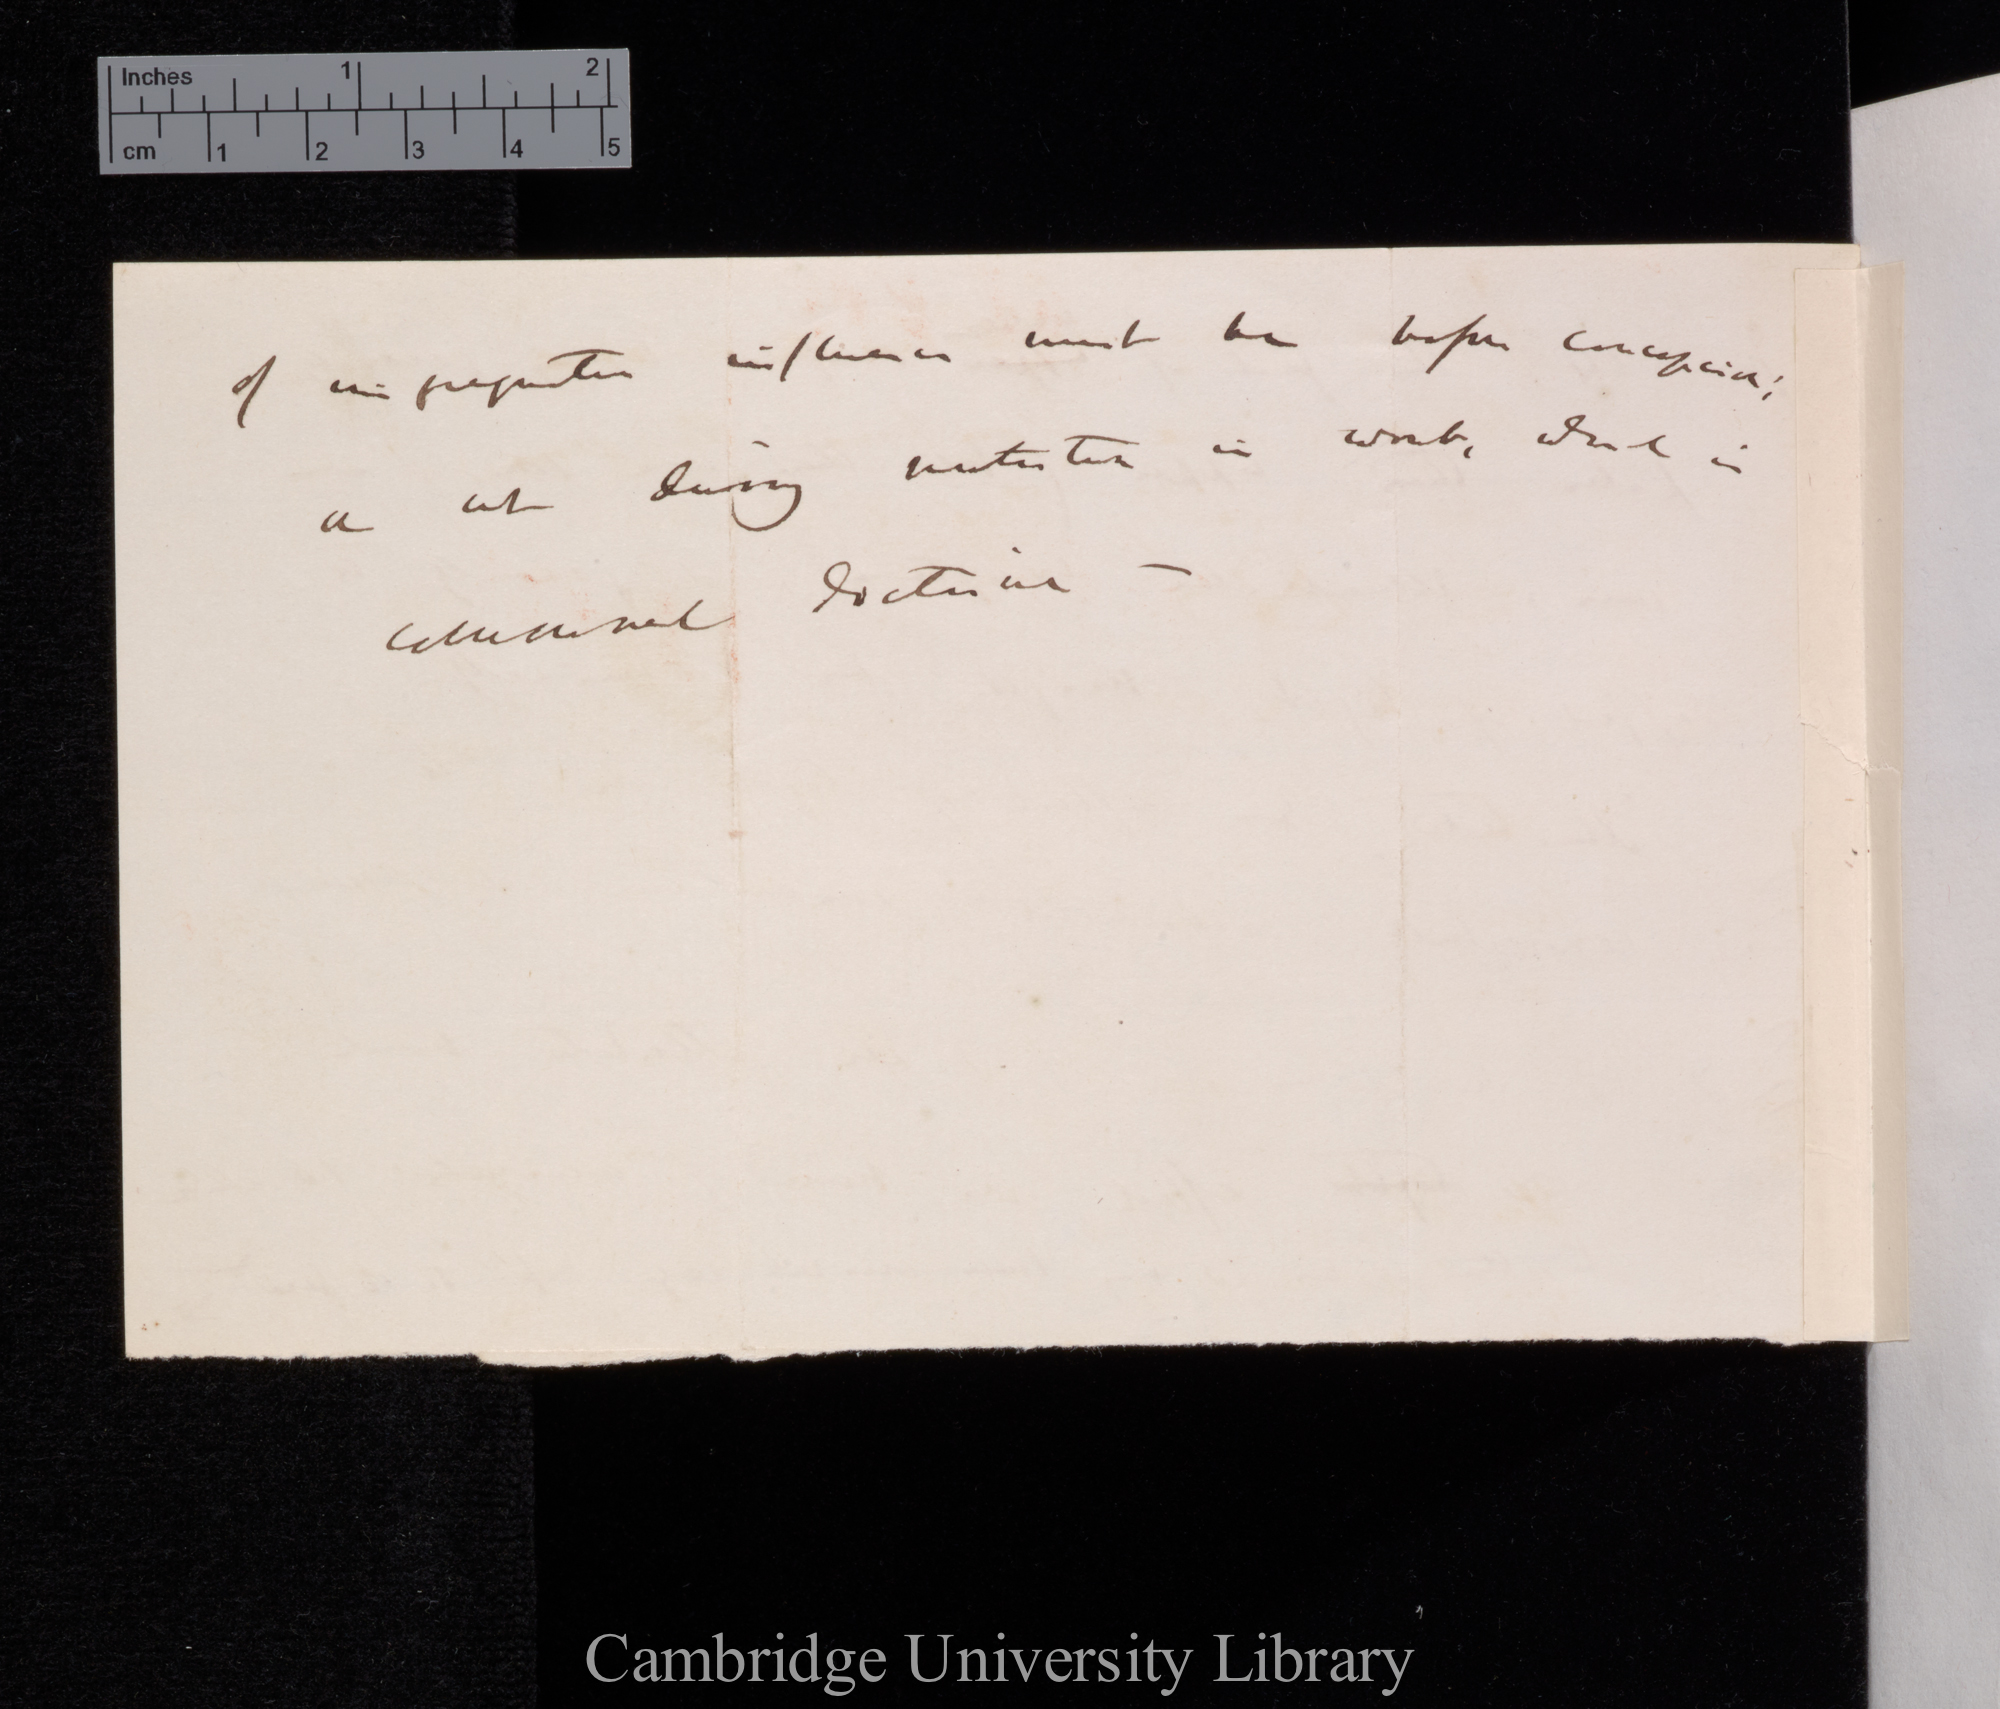 Inches 1 2
cm 1 2 3 4 5
of impregnation influence must be before conception;
or at during maturation in womb, which is
common doctrine —
Cambridge University Library